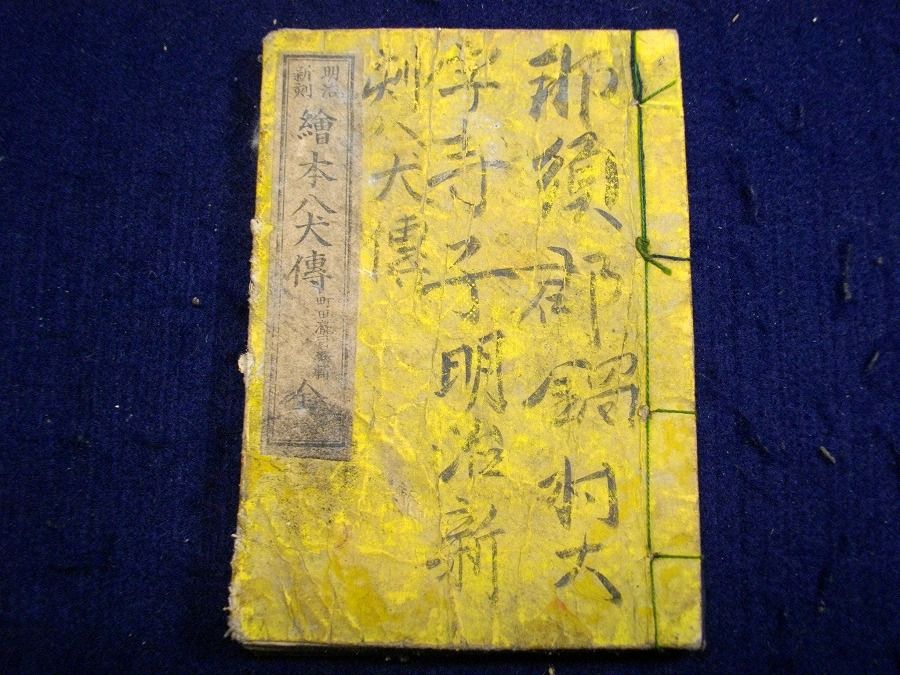 那須郡鍋村大
字寺子明治新
刻八犬傳
明治
新刻
繪本八犬傳
全